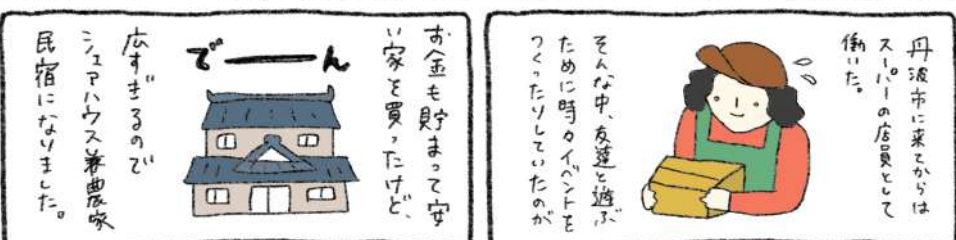 丹波市に来てからは
スーパーの店員として
働いた。
そんな中、友達と遊ぶ
ために時々イベントを
つくったりしていたのが
お金も貯まって安
い家を買ったけど、
でーん
広すぎるので
シェアハウス兼農家
民宿になりました。